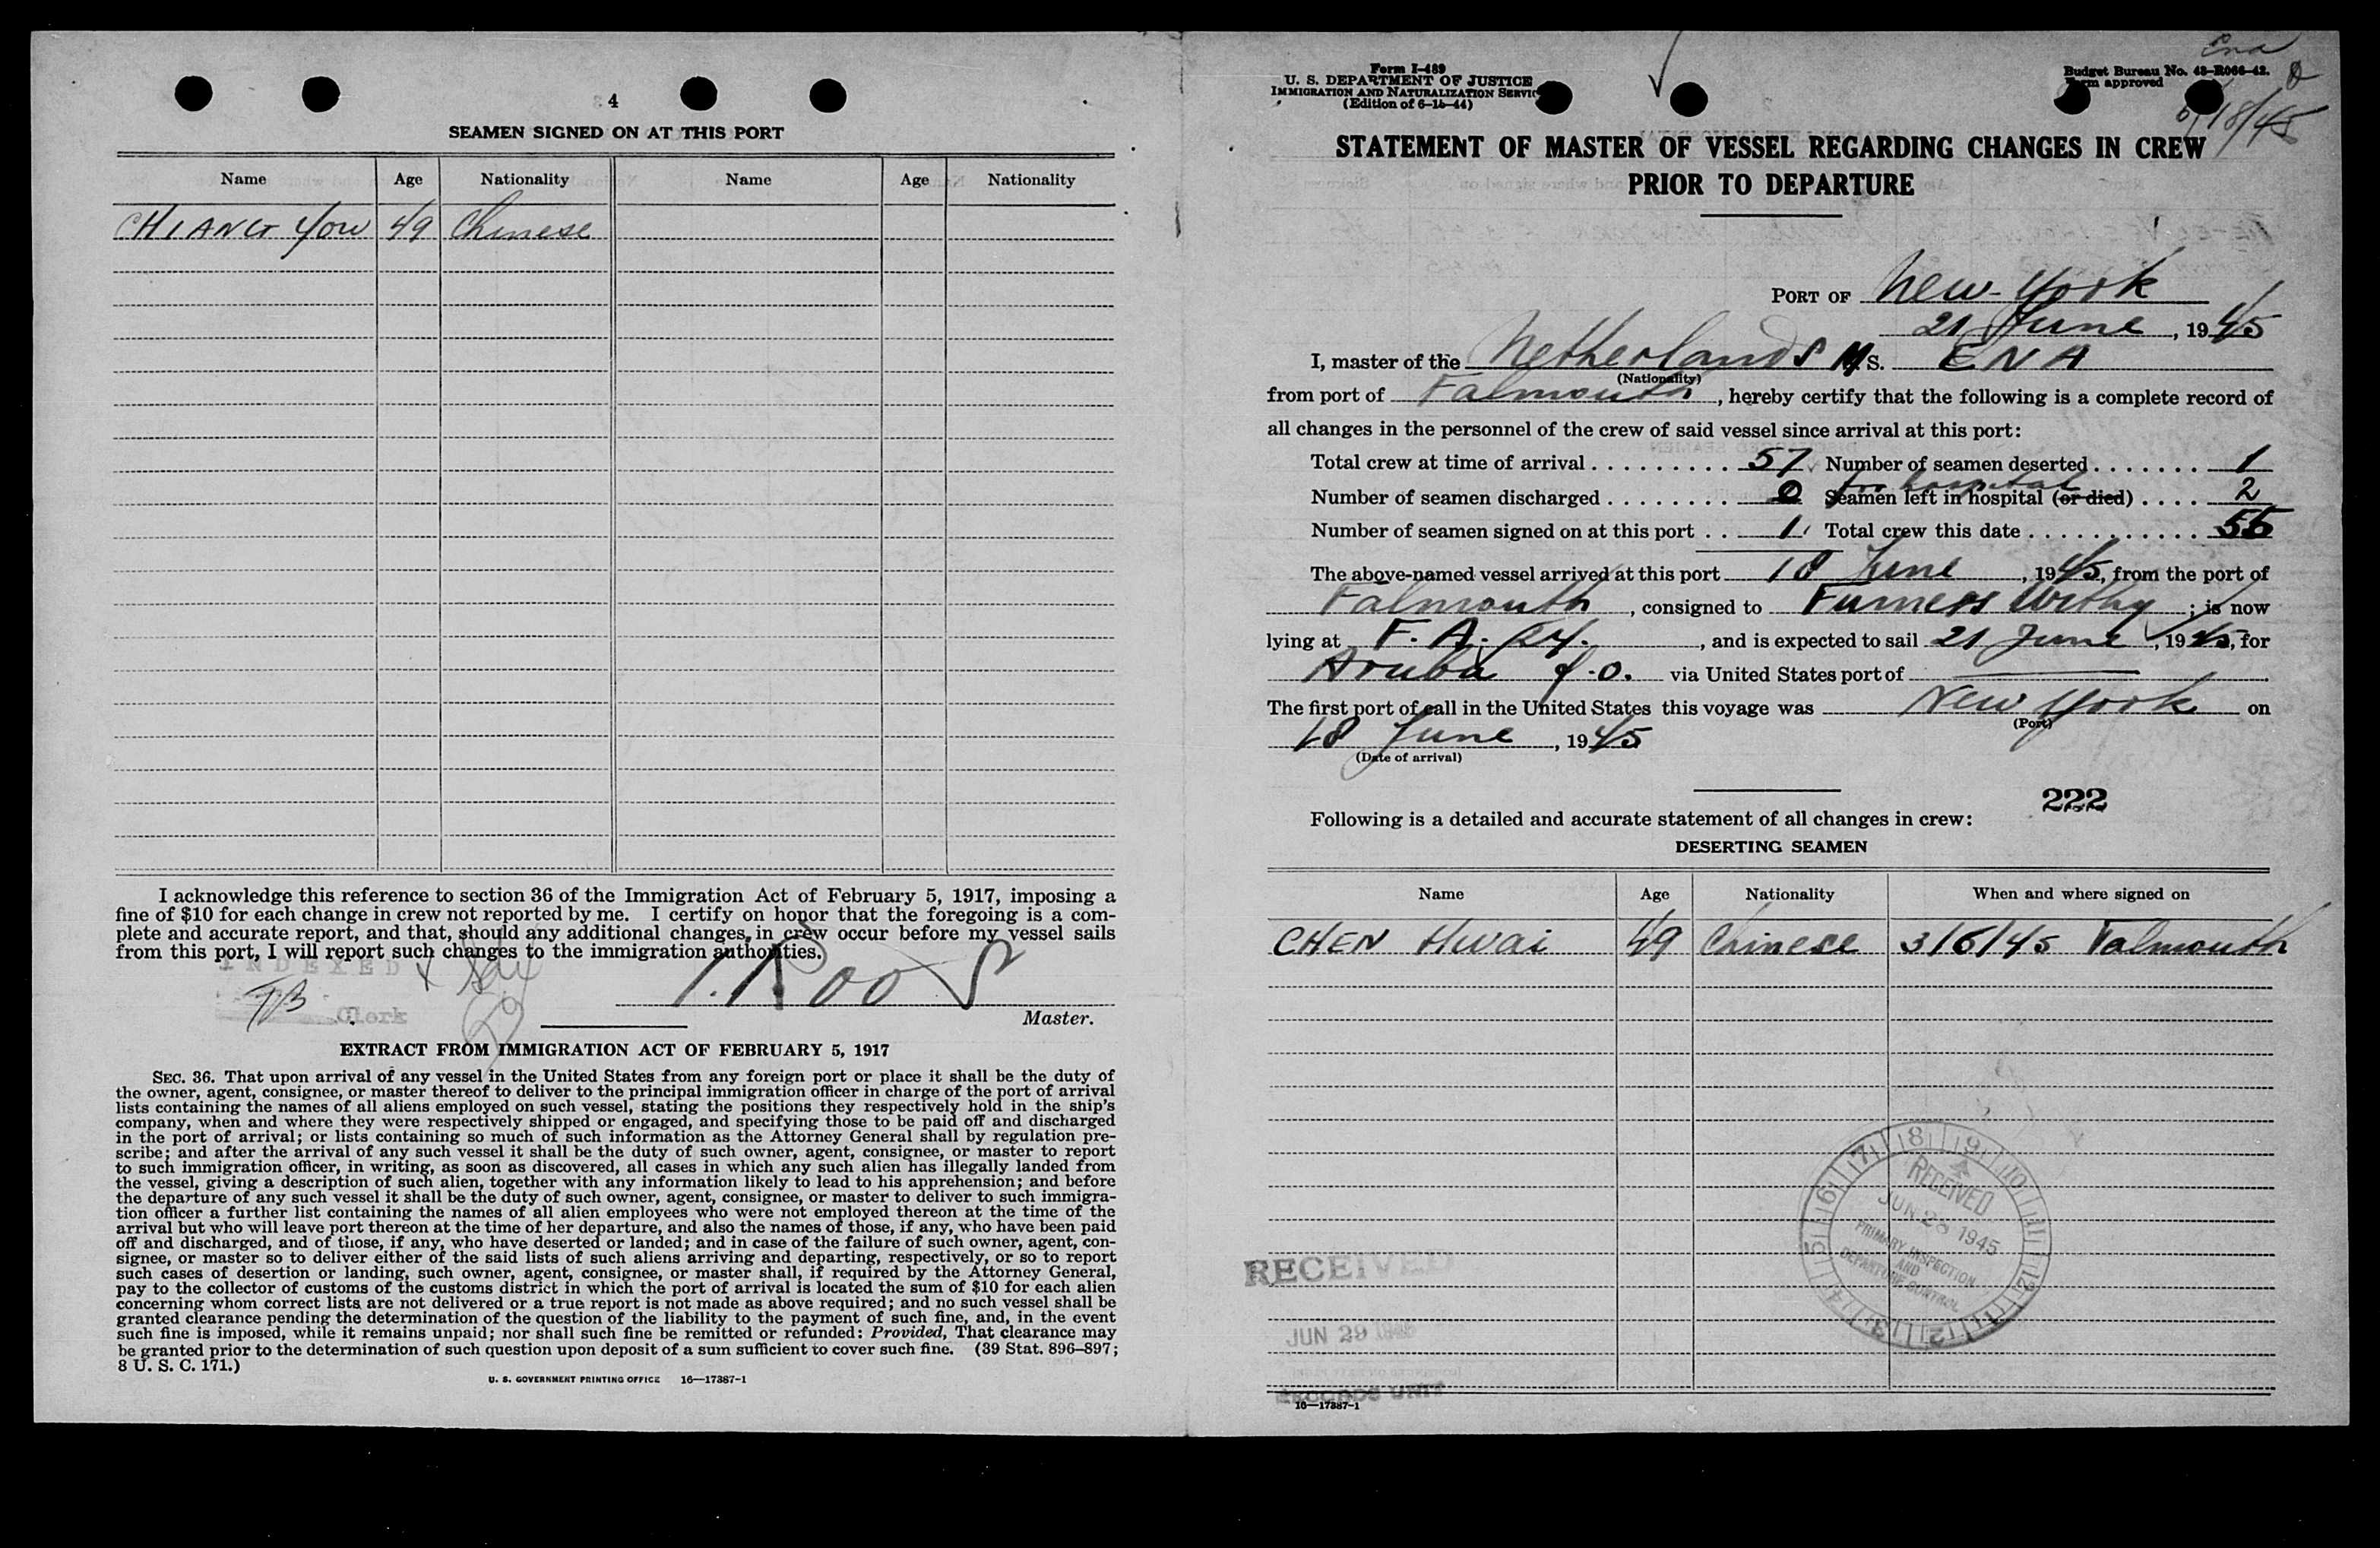 4
SEAMEN SIGNED ON AT THIS PORT
Name Age Nationality Name Age Nationality
CHIANG You 49 Chinese
I acknowledge this reference to section 36 of the Immigration Act of February 5, 1917, imposing a
fine of $10 for each change in crew not reported by me. I certify on honor that the foregoing is a com-
plete and accurate report, and that, should any additional changes in crew occur before my vessel sails
from this port, I will report such changes to the immigration authorities.
INDEXED
TB Clerk
Master.
EXTRACT FROM IMMIGRATION ACT OF FEBRUARY 5, 1917
SEC. 36. That upon arrival of any vessel in the United States from any foreign port or place it shall be the duty of
the owner, agent, consignee, or master thereof to deliver to the principal immigration officer in charge of the port of arrival
lists containing the names of all aliens employed on such vessel, stating the positions they respectively hold in the ship's
company, when and where they were respectively shipped or engaged, and specifying those to be paid off and discharged
in the port of arrival; or lists containing so much of such information as the Attorney General shall by regulation pre-
scribe; and after the arrival of any such vessel it shall be the duty of such owner, agent, consignee, or master to report
to such immigration officer, in writing, as soon as discovered, all cases in which any such alien has illegally landed from
the vessel, giving a description of such alien, together with any information likely to lead to his apprehension; and before
the departure of any such vessel it shall be the duty of such owner, agent, consignee, or master to deliver to such immigra-
tion officer a further list containing the names of all alien employees who were not employed thereon at the time of the
arrival but who will leave port thereon at the time of her departure, and also the names of those, if any, who have been paid
off and discharged, and of those, if any, who have deserted or landed; and in case of the failure of such owner, agent, con-
signee, or master so to deliver either of the said lists of such aliens arriving and departing, respectively, or so to report
such cases of desertion or landing, such owner, agent, consignee, or master shall, if required by the Attorney General,
pay to the collector of customs of the customs district in which the port of arrival is located the sum of $10 for each alien
concerning whom correct lists are not delivered or a true report is not made as above required; and no such vessel shall be
granted clearance pending the determination of the question of the liability to the payment of such fine, and, in the event
such fine is imposed, while it remains unpaid; nor shall such fine be remitted or refunded: Provided, That clearance may
be granted prior to the determination of such question upon deposit of a sum sufficient to cover such fine. (39 Stat. 896–897;
8 U. S. C. 171.)
U. S. GOVERNMENT PRINTING OFFICE 16—17387-1
Form I-489
U. S. DEPARTMENT OF JUSTICE
IMMIGRATION AND NATURALIZATION SERVICE
(Edition of 6-15-44)
Ena
Budget Bureau No. 43-R066-42.
Form approved
6/18/45
STATEMENT OF MASTER OF VESSEL REGARDING CHANGES IN CREW
PRIOR TO DEPARTURE
PORT OF New-York
21 June, 1945
I, master of the Netherlands M.S. ENA
(Nationality)
from port of Falmouth, hereby certify that the following is a complete record of
all changes in the personnel of the crew of said vessel since arrival at this port:
Total crew at time of arrival 57 Number of seamen deserted 1
for hospital
Number of seamen discharged 0 Seamen left in hospital (or died) 2
Number of seamen signed on at this port 1 Total crew this date 55
The above-named vessel arrived at this port 18 June, 1945, from the port of
Falmouth, consigned to Furness Withy; is now
lying at F. A., and is expected to sail 21 June, 1945, for
Aruba f.o. via United States port of
The first port of call in the United States this voyage was New York on
(Port)
18 June, 1945
(Date of arrival)
222
Following is a detailed and accurate statement of all changes in crew:
DESERTING SEAMEN
Name Age Nationality When and where signed on
CHEN Hwai 49 Chinese 3/6/45 Falmouth
7 8 9 10 11 12 1 2 3 4 5 6
RECEIVED
JUN 28 1945
PRIMARY INSPECTION
AND
DEPARTURE CONTROL
RECEIVED
JUN 29 1945
RECORDS UNIT
16—17387-1